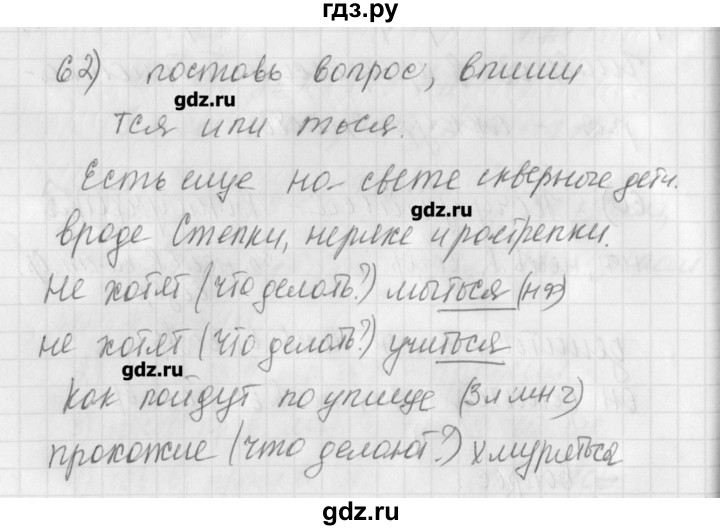 гдз.ру
62) поставь вопрос, впиши
gdz.ru
тся или ться.
Есть еще на свете скверные дети.
gdz.ru
вроде Степки, неряхе и растрепки.
Не хотят (что делать?) мыться (нф)
не хотят (что делать?) учиться
gdz.ru
Как пойдут по улице (3л мн ч)
прохожие (что делают?) хмуряться
gdz.ru